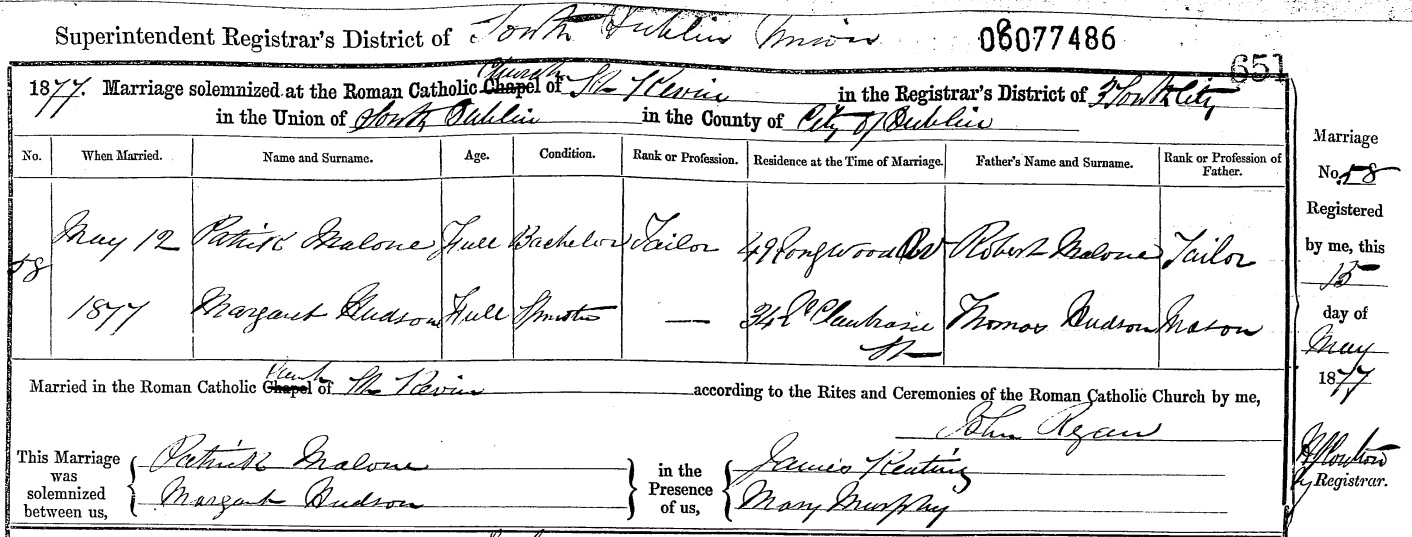 Superintendent Registrar's District of South Dublin Union 08077486
651
1877. Marriage solemnized at the Roman Catholic Chapel Church of St Kevin in the Registrar's District of South City
in the Union of South Dublin in the County of City of Dublin
No. When Married. Name and Surname. Age. Condition. Rank or Profession. Residence at the Time of Marriage. Father's Name and Surname. Rank or Profession of Father.
58 May 12 Patrick Malone Full Bachelor Tailor 49 Longwood Av Robert Malone Tailor
1877 Margaret Hudson Full Spinster — 34 Clanbrasie St Thomas Hudson Mason
Married in the Roman Catholic Chapel Church of St Kevin according to the Rites and Ceremonies of the Roman Catholic Church by me,
John Regan
This Marriage was solemnized between us,
Patrick Malone
Margaret Hudson
in the Presence of us,
James Keating
Mary Murphy
Marriage
No. 58
Registered
by me, this
15
day of
May
1877
Registrar.